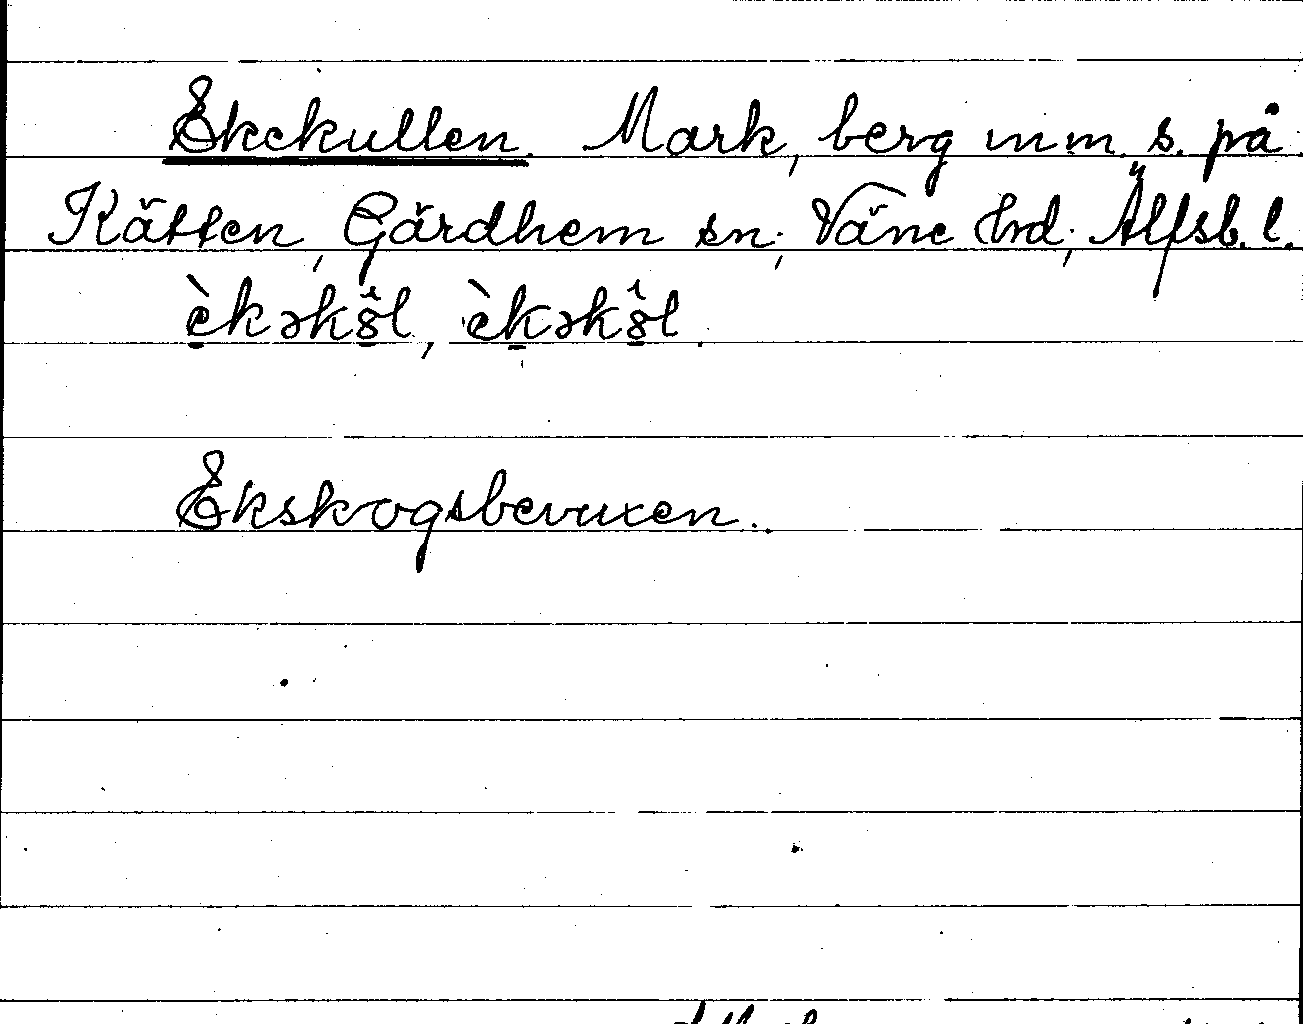 Ekekullen. Mark, berg m m. s. på
Kätten, Gärdhem sn; Väne hrd; Älfsb. l.
è̱kəkȣ̱̂l, èḵəkȣ̱̂l.
Ekskogsbevuxen.